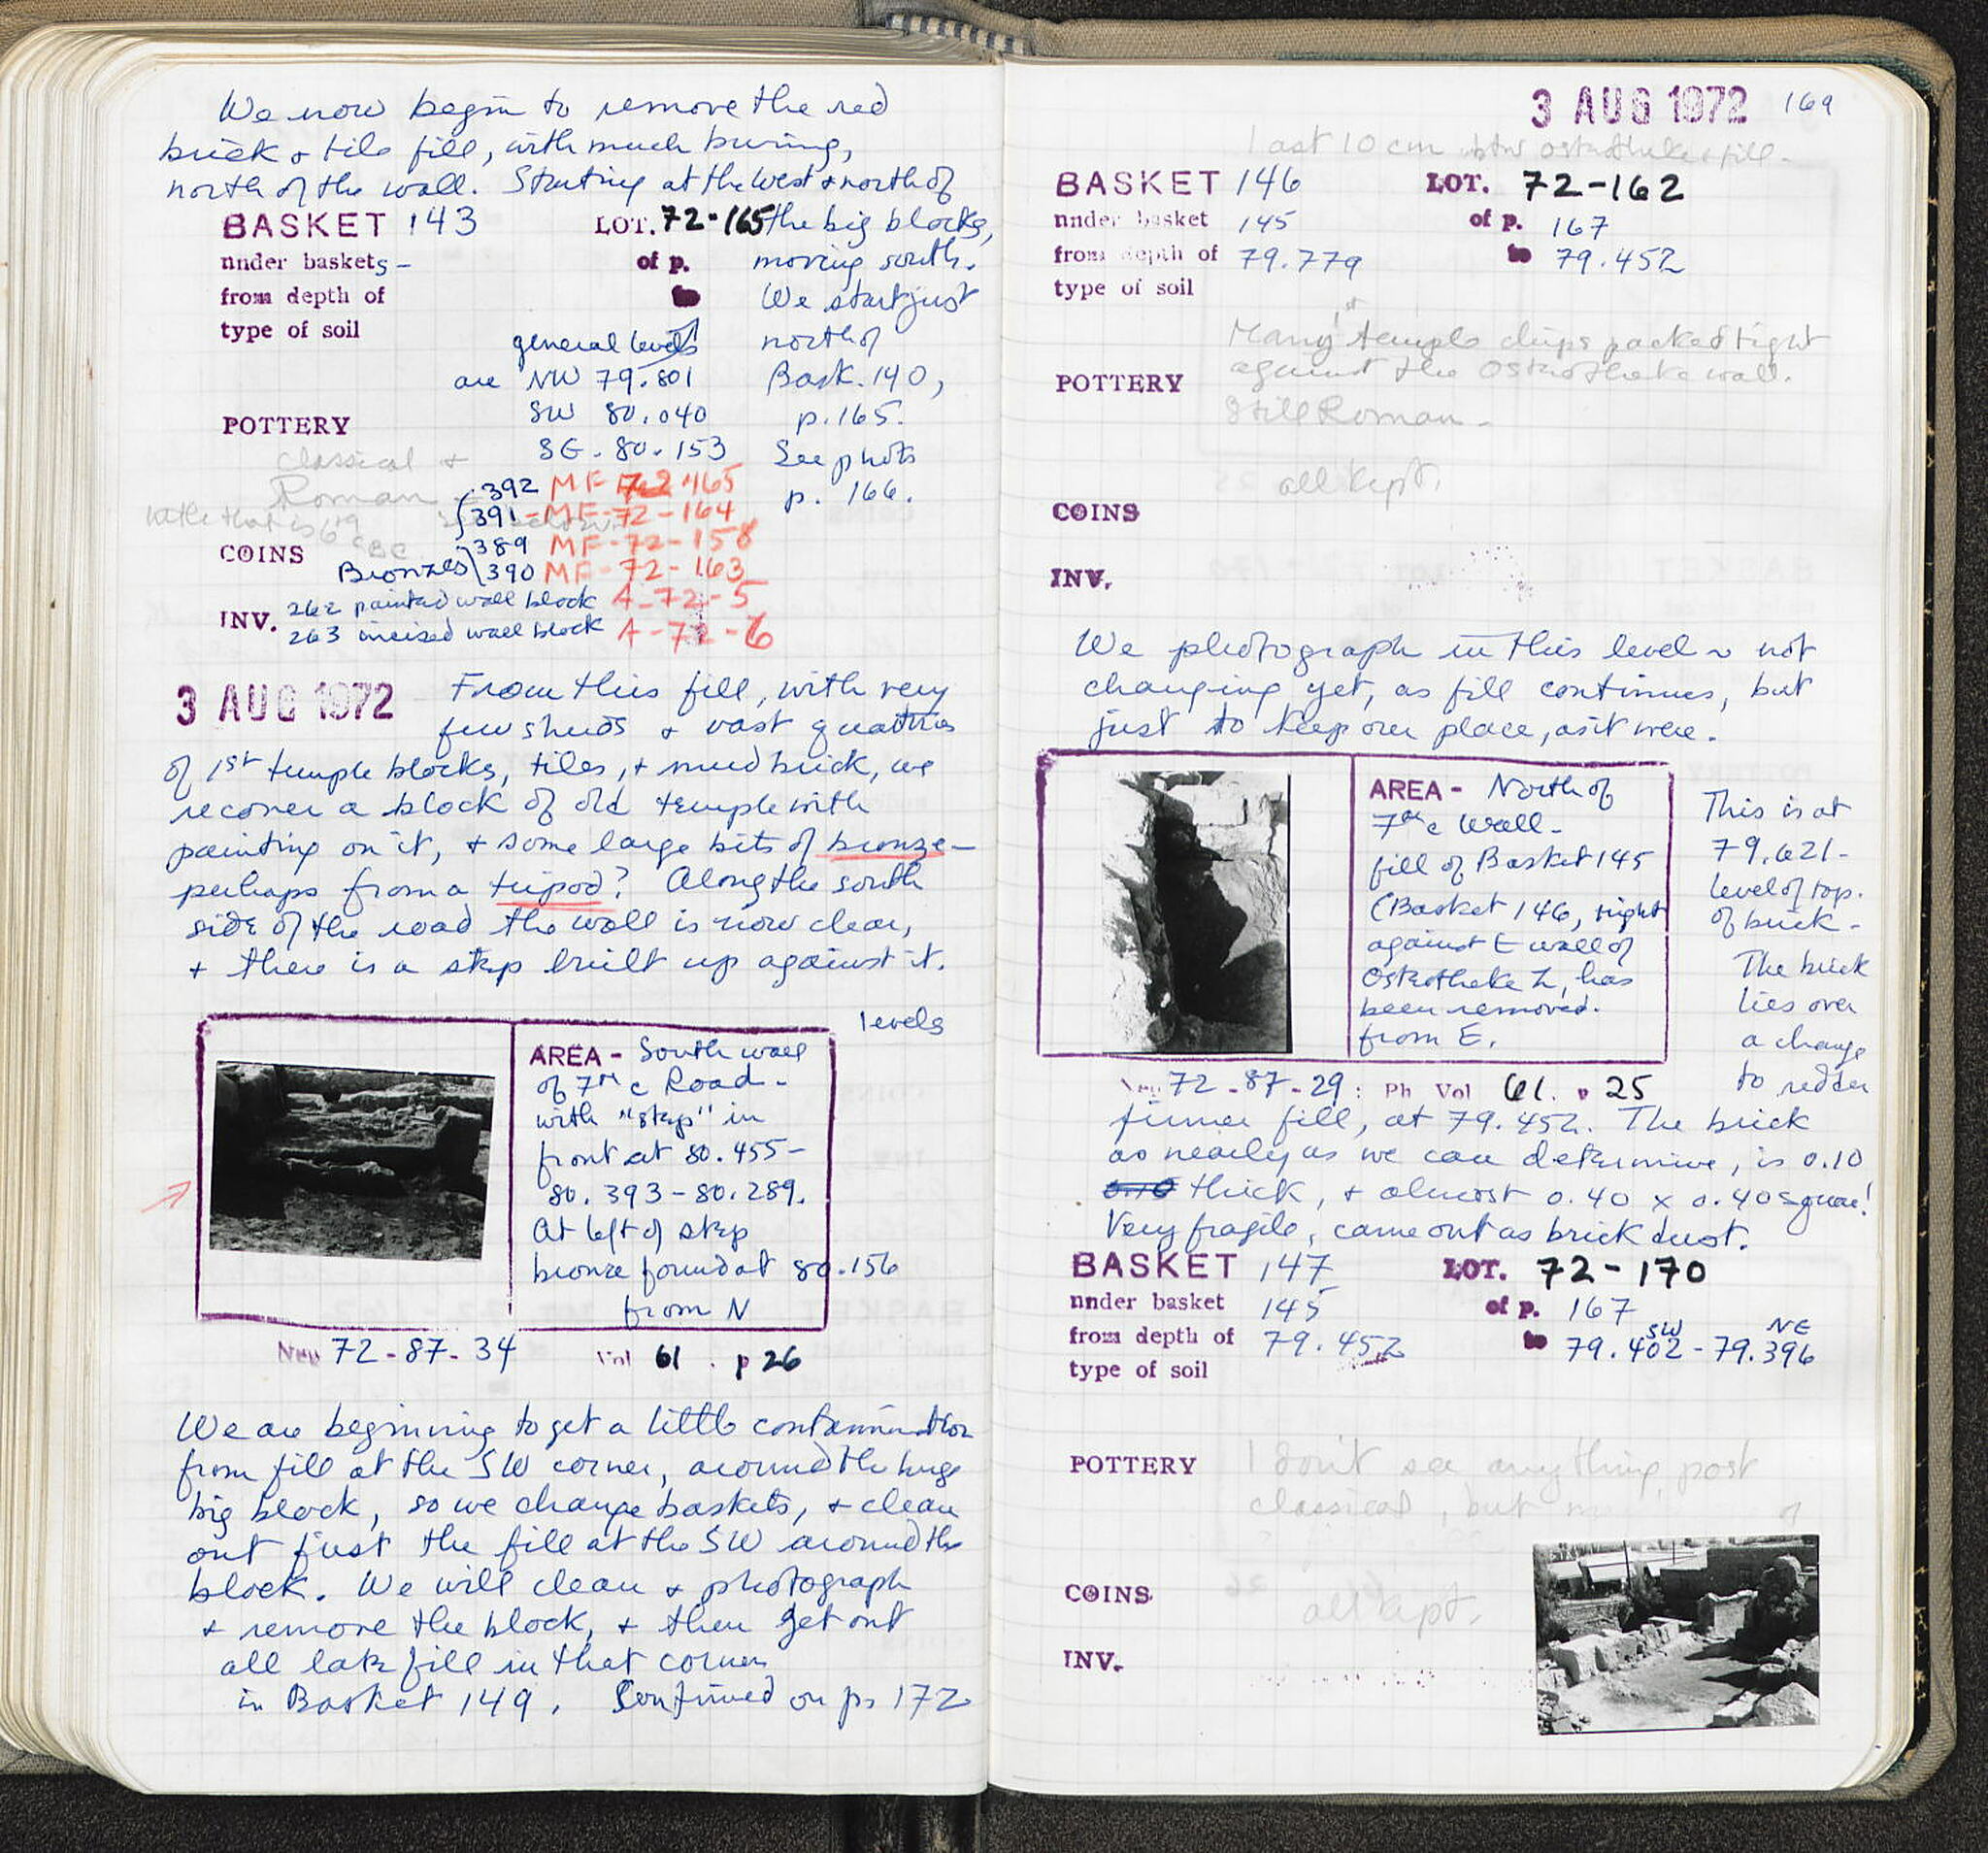 We now begin to remove the red
brick & tile fill, with much burning,
north of the wall. Starting at the West & north of
the big blocks,
moving south.
We start just
north of
Bask. 140,
p. 165.
See photo
p. 166.
BASKET 143 LOT. 72-165
under baskets - of p.
from depth of to
type of soil
general levels
are NW 79.801
SW 80.040
SE - 80.153
POTTERY
classical &
Roman
392 MF 72 165
391 - MF-72-164
389 MF-72-158
COINS Bronzes 390 MF-72-163
INV. 262 painted wall block A-72-5
263 incised wall block A-72-6
3 AUG 1972 From this fill, with very
few sherds & vast quantities
of 1st temple blocks, tiles, & mud brick, we
recover a block of old temple with
painting on it, & some large bits of bronze -
perhaps from a tripod? Along the south
side of the road the wall is now clear,
& there is a step built up against it.
levels
AREA - South wall
of 7th c Road -
with "step" in
front at 80.455 -
80.393 - 80.289.
At left of step
bronze found at 80.156
from N
Neg 72-87-34 Vol 61 . p 26
We are beginning to get a little contamination
from fill at the SW corner, around the huge
big block, so we change baskets, & clean
out just the fill at the SW around the
block. We will clean & photograph
& remove the block, & then get out
all late fill in that corner
in Basket 149. Continued on ps 172
3 AUG 1972 169
last 10 cm btw ostotheke & fill -
BASKET 146 LOT. 72-162
under basket 145 of p. 167
from depth of 79.779 to 79.452
type of soil
Many 1st temple chips packed tight
against the Osteotheke wall.
POTTERY
Still Roman -
all kept.
COINS
INV.
We photograph in this level ~ not
changing yet, as fill continues, but
just to keep our place, as it were.
AREA - North of
7th c Wall -
fill of Basket 145
(Basket 146, right
against E wall of
Osteotheke 2, has
been removed.
from E.
This is at
79.621 -
level of top.
of brick -
The brick
lies over
a change
to redder
Neg 72-87-29 : Ph Vol 61. p 25
firmer fill, at 79.452. The brick
as nearly as we can determine, is 0.10
thick, & almost 0.40 x 0.40 square!
Very fragile, came out as brick dust.
BASKET 147 LOT. 72-170
under basket 145 of p. 167
from depth of 79.452 to 79.402 SW - 79.396 NE
type of soil
POTTERY I don't see anything post
classical, but
COINS all kept.
INV.